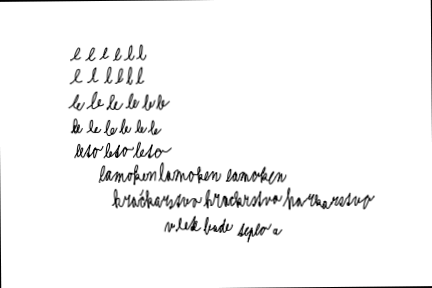 l l l l l l
l l l l l l
le le le le le le
le le le le le le
leto leto leto
lamoken lamoken lamoken
hračkarstvo hrackrstvo harkarstvo
vlek bude teplo a